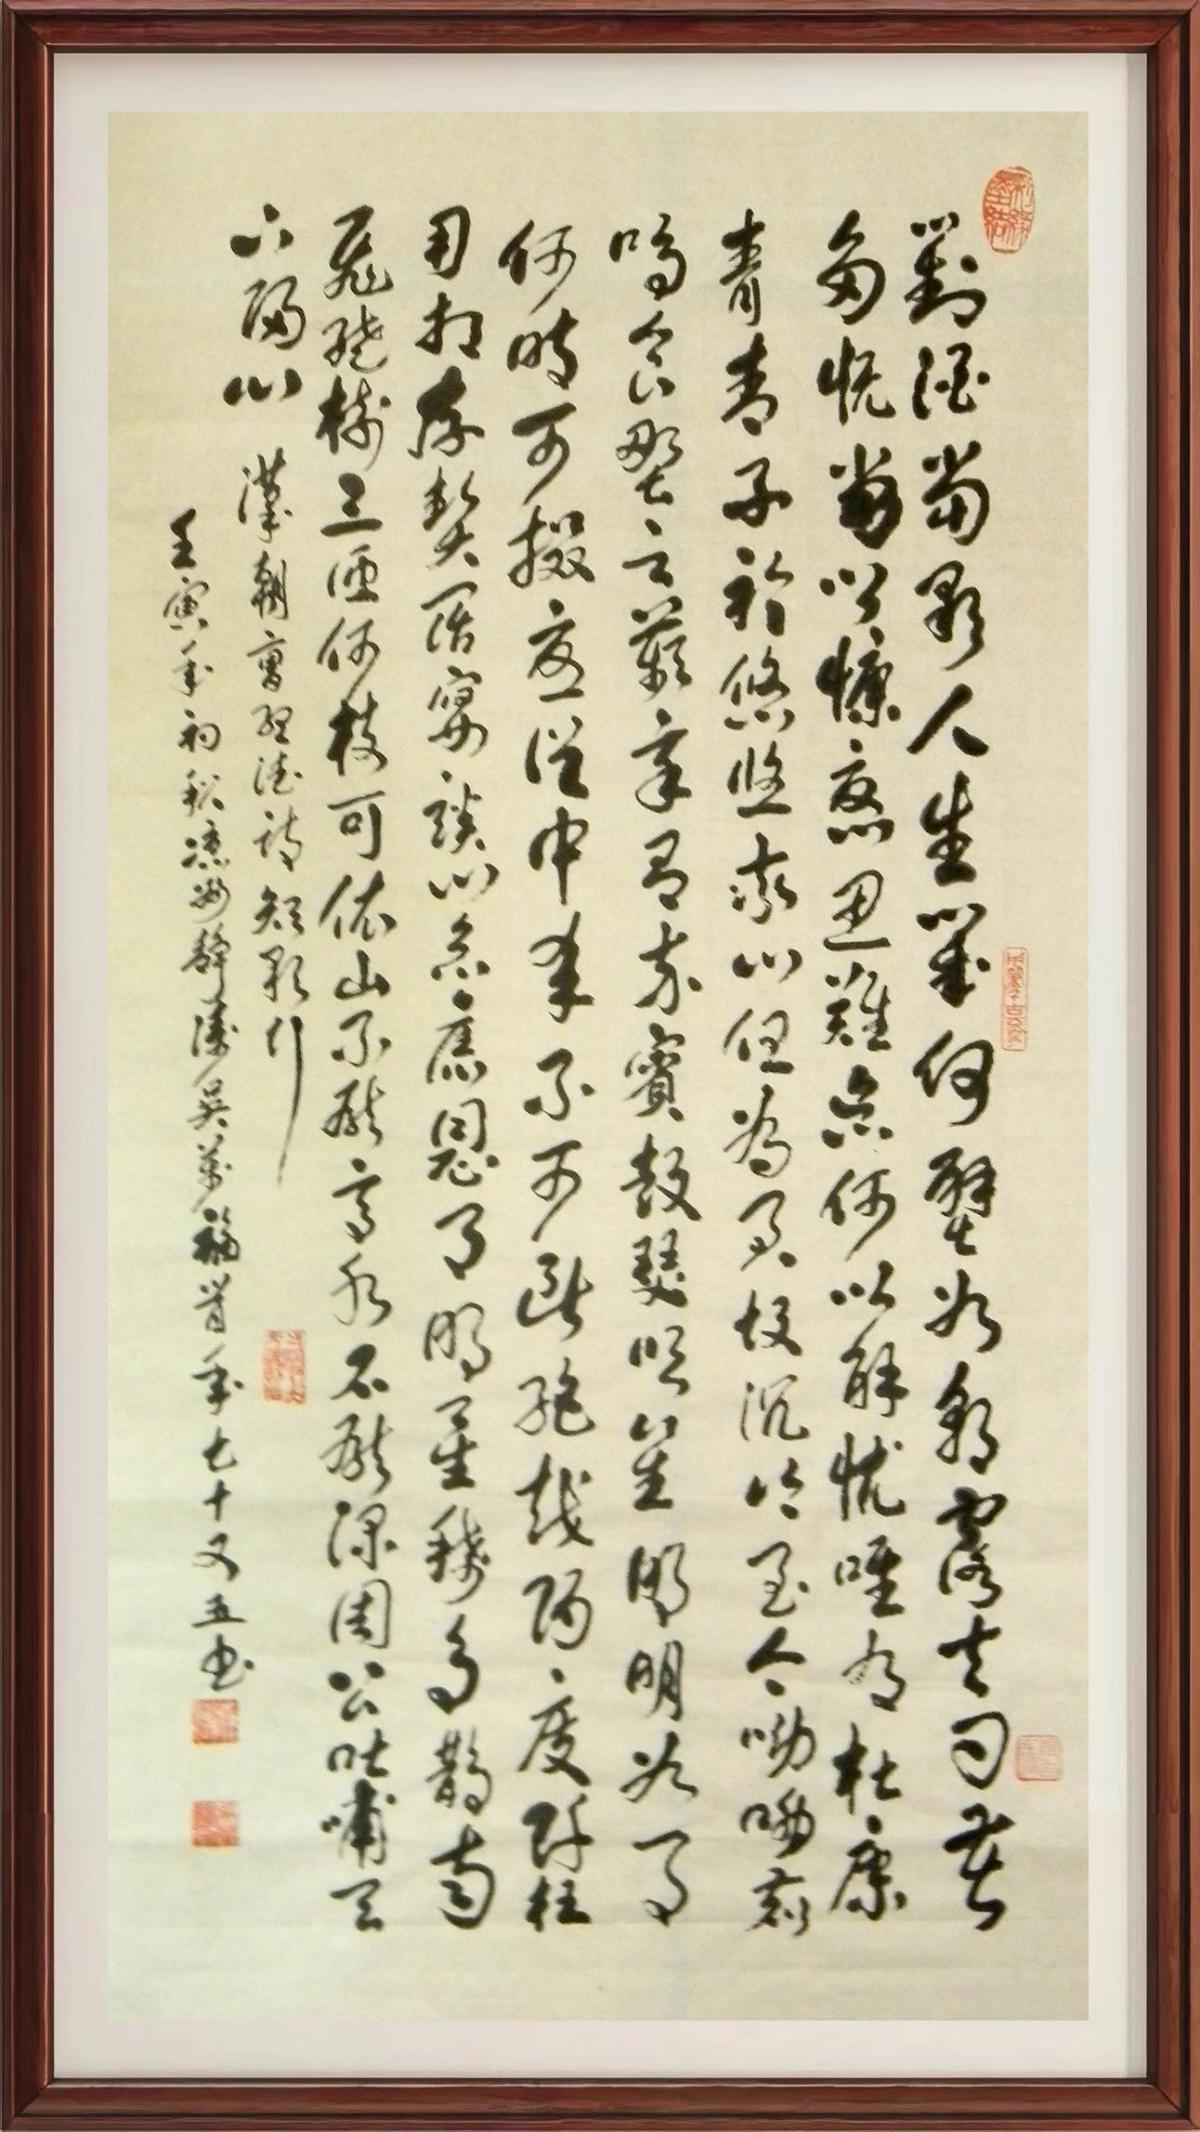 對酒當歌人生幾何譬如朝露去日苦
多慨當以慷憂思難忘何以解憂唯有杜康
青青子衿悠悠我心但為君故沉吟至今呦呦鹿
鳴食野之蘋我有嘉賓鼓瑟吹笙明明如月
何時可掇憂從中來不可斷絕越陌度阡枉
用相存契闊宴談心念舊恩月明星稀烏鵲南
飛繞樹三匝何枝可依山不厭高水不厭深周公吐哺天
下歸心 漢朝曹孟德詩短歌行
壬寅年初秋 靜 吴萬福時年七十又五书